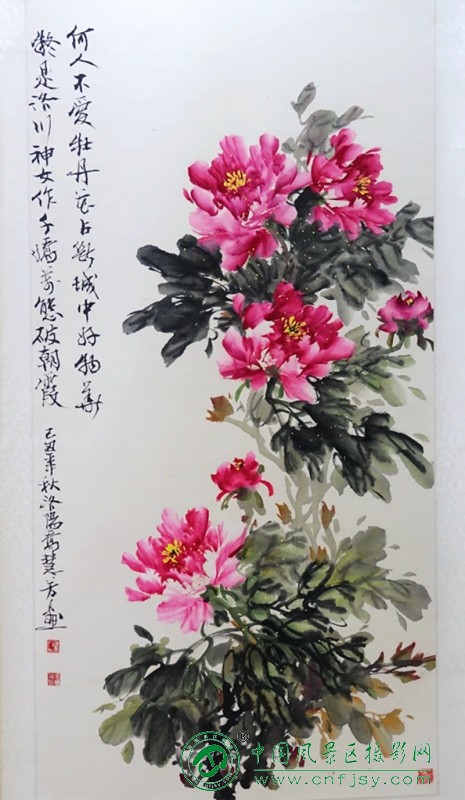 何人不愛牡丹花占断城中好物華
疑是洛川神女作千嬌萬態破朝霞
己丑年秋洛陽
®
中国风景区摄影网
www.cnfjsy.com